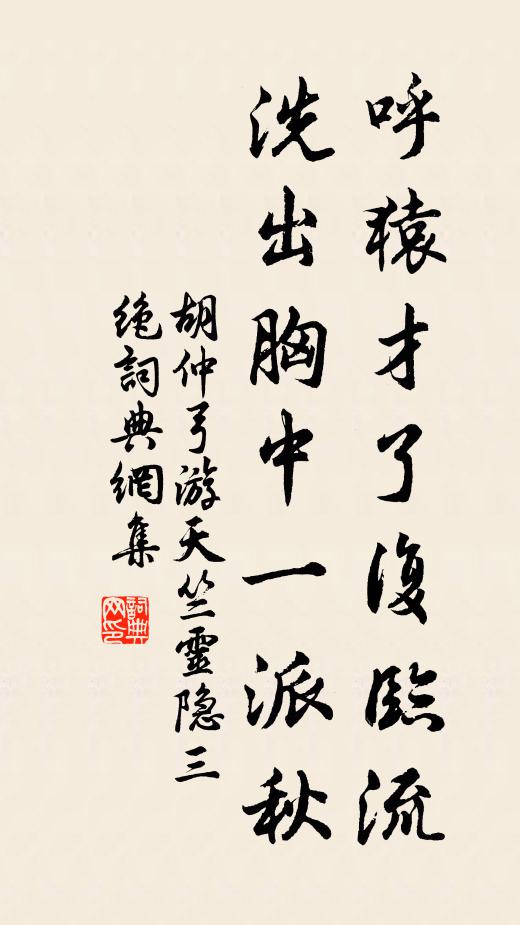 呼猿才了復臨流
洗出胸中一派秋
胡仲弓游天竺靈隐三
絶詞典網集
詞典网印